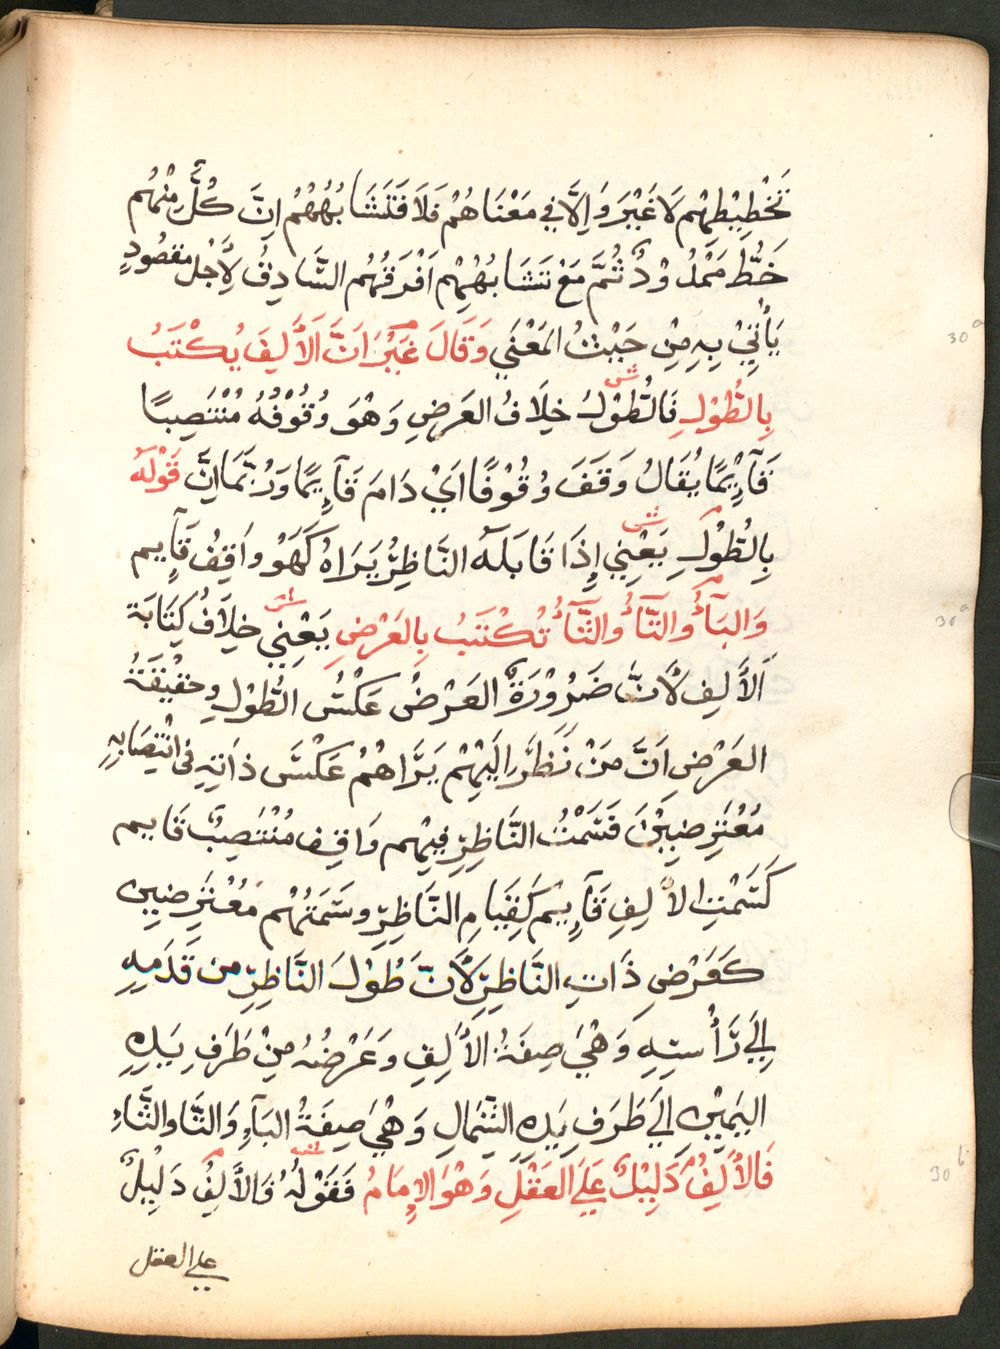 تَخْطِيْطِهْم لَا غَيْرَ وَاِلَّا فِي مَعْنَاهُمْ فَلَا فَتَشَابُهُهُم اِنَّ كُلَّ مِنْهُم
خَطُّ مَمْدُوْدٌ ثُمَّ مَعْ تَشَابُهُهِم اَفْرَقُهُم السَّادِقُ لِاَجْل مقصُودٍ
يَأْتِيْ بِهِ مِنْ حَيْثُ المَعْنَي وَقَالَ غَيْرَ اَنَّ الْاَلِفَ يُكْتَبُ
بِالطُّوْلِ فَالطُّوْلُ خِلَافُ العَرَضِ وَهْوَ وُقُوْفُهُ مُنْتَصِبًا
قَآئِمًا يُقَالُ وَقَفَ وُقُوْفًا اَيْ دَامَ قَآئِمًا وَرُبَّمَا اِنَّ قَوْلَهُ
بِالطُّوْلِ يَعْنِي إِذَا قَابَلَهُ النَّاظِرُ يَرَاهُ كَهَوْ وَاقِفُ قَآيِم
وَالبَآءُ وَالتَّآءُ وَالثَّآءُ تُكْتَبُ بِالعَرْضِ يَعْنِي خِلَافُ كِتَابَة
الْاَلِفِ لَاَنَّ ضَرُوْرَةُ العَرْضُ عَكْسُ الطُّوْلِ وحَقِيْقَةُ
العَرْضِ اَنَّ مَنْ نَظَرَ اِلَيْهِمْ يَرَاهُمْ عَكْسَ ذَاتِهِ فِي انْتِصَابِهِ
مُعْتَرِضِيْنَ فَسَمْتُ النَّاظِرِ فِيهِم وَاقِف مُنْتَصِبٌ قَايم
كَسَمْتِ الاَلِفِ قَآيِم كَقِيَامِ النَّاظِرِ وسَمَتُهُم مُعْتَرِضين
كَعَرْضِ ذَاتِ النَّاظِرِ لَاَنَّ طُوْلَ النَّاظِرِ من قَدَمِهِ
اِلَي رَأْسِهِ وَهْيَ صِفَةُ الاَلِفِ وعَرْضُهُ مِنْ طَرَفِ يَدِهِ
اليَمِيْنِ اِلَي طَرَفِ يَدِهِ الشِّمَالِ وَهْيَ صِفَةُ البَآءِ وَالتَّا والثَّاءِ
فَالْاَلِفُ دَلِيْلٌ عَلَي العَقْلِ وَهْوَ الإِمَامُ فَقَوْلُهُ فَالْاَلِفُ دَلِيْلٌ
علي العقل
30a
30a
30b